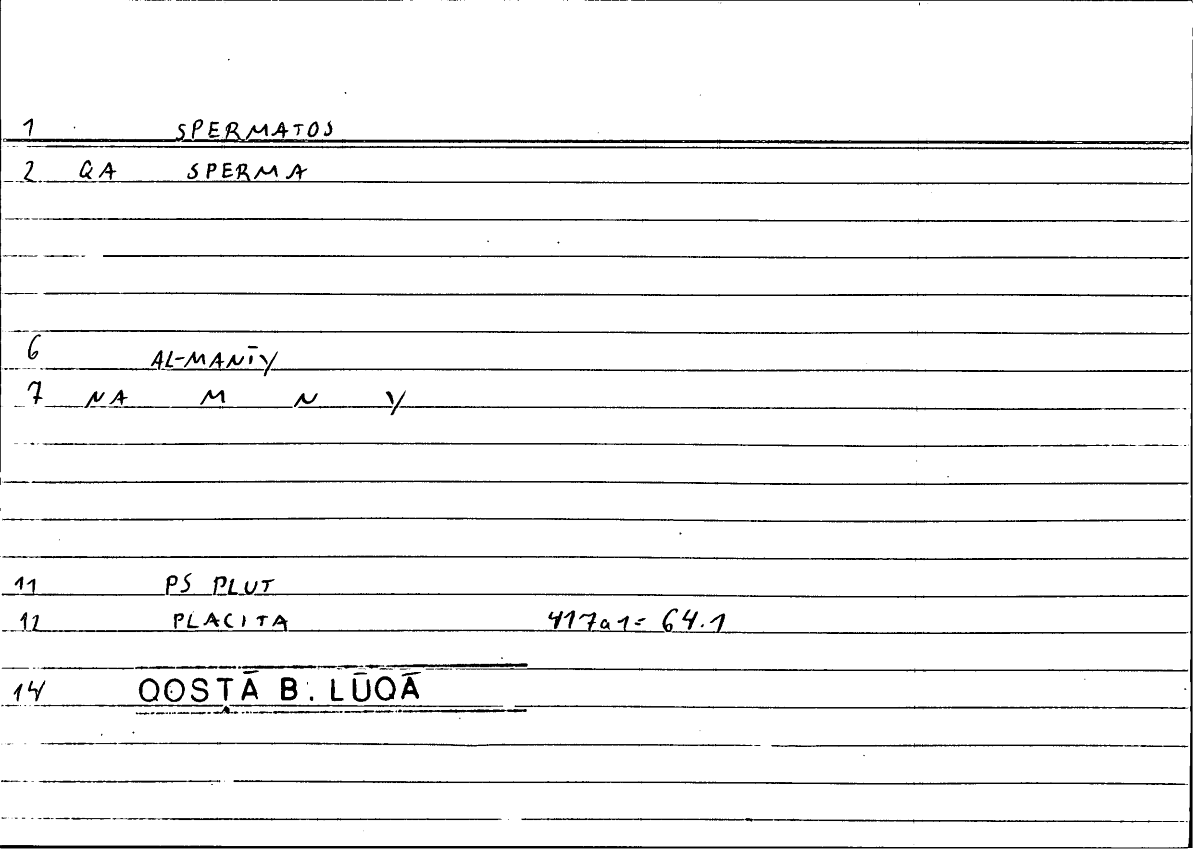 1 SPERMATOS
2 QA SPERMA
6 AL-MANĪY
7 NA M N Y
11 PS PLUT
12 PLACITA 417a1= 64.1
14 QOSṬĀ B. LŪQĀ